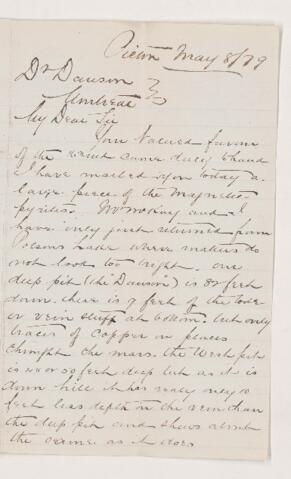 Pictou May 8/79
Dr Dawson
Montreal
My Dear Sir
Your valued favour
of the came duly to hand
I have mailed you today a
large piece of the Magnetic
pyrites. Mr McKay and I
have only just returned from
Lake where matters do
not look too bright. One
deep pit (the "Dawson") is 82 feet
down. there is 9 feet of the lode
or vein stuff at bottom. but only
traces of copper in places
through the mass. the West pit
is 50 feet deep but as it is
down hill it has really only 10
feet less depth on the vein than
the deep pit and shows about
the same as it does